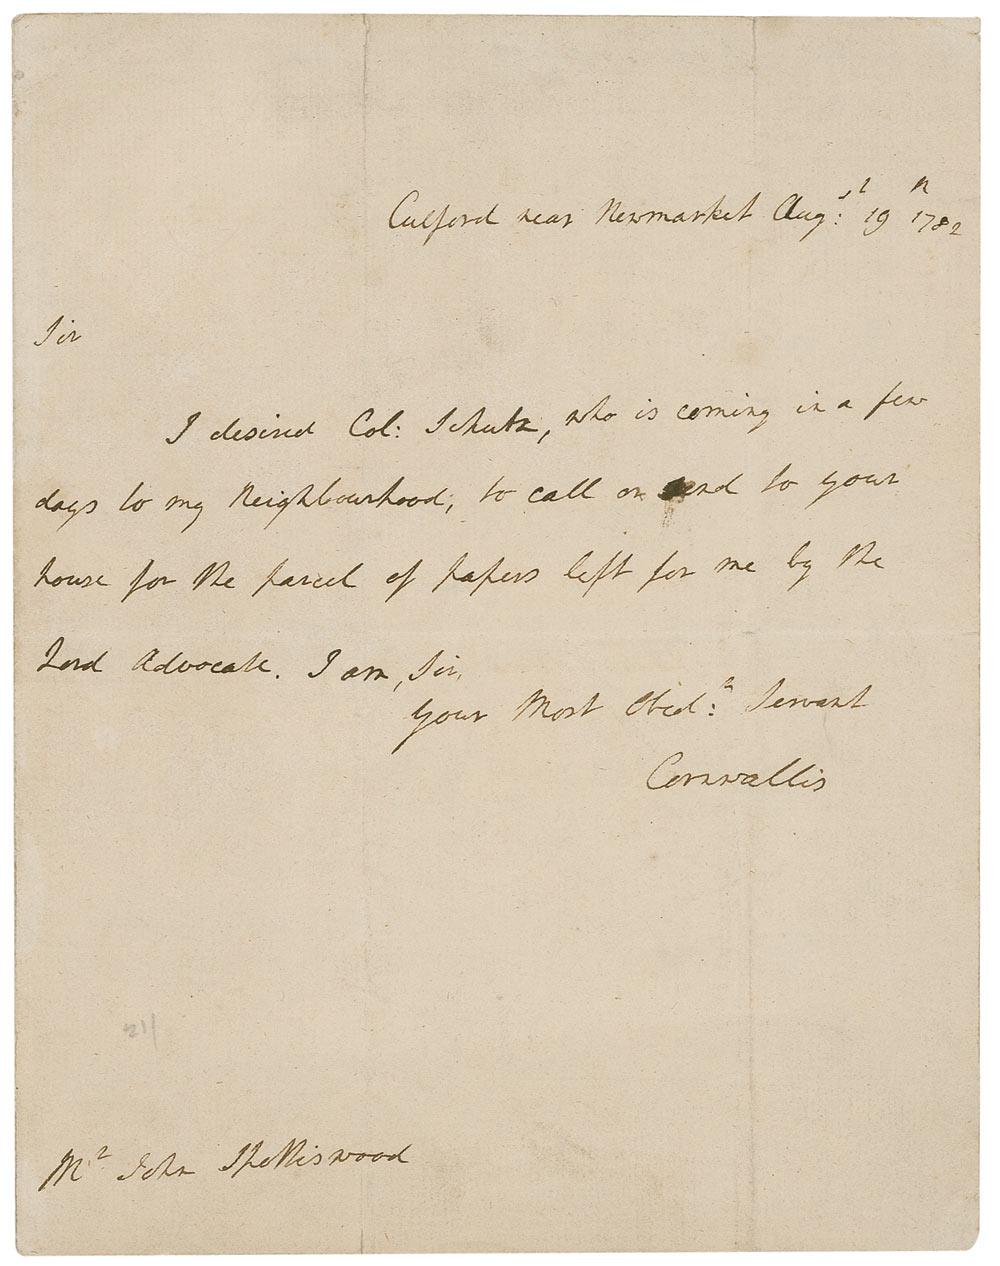 Culford near Newmarket Aug:st 19th 1782
Sir
I desired Col: Schutz, who is coming in a few
days to my Neighbourhood, to call or send to your
house for the parcel of papers left for me by the
Lord Advocate. I am, Sir,
your Most Obed:t Servant
Cornwallis
211
Mr John Spottiswood